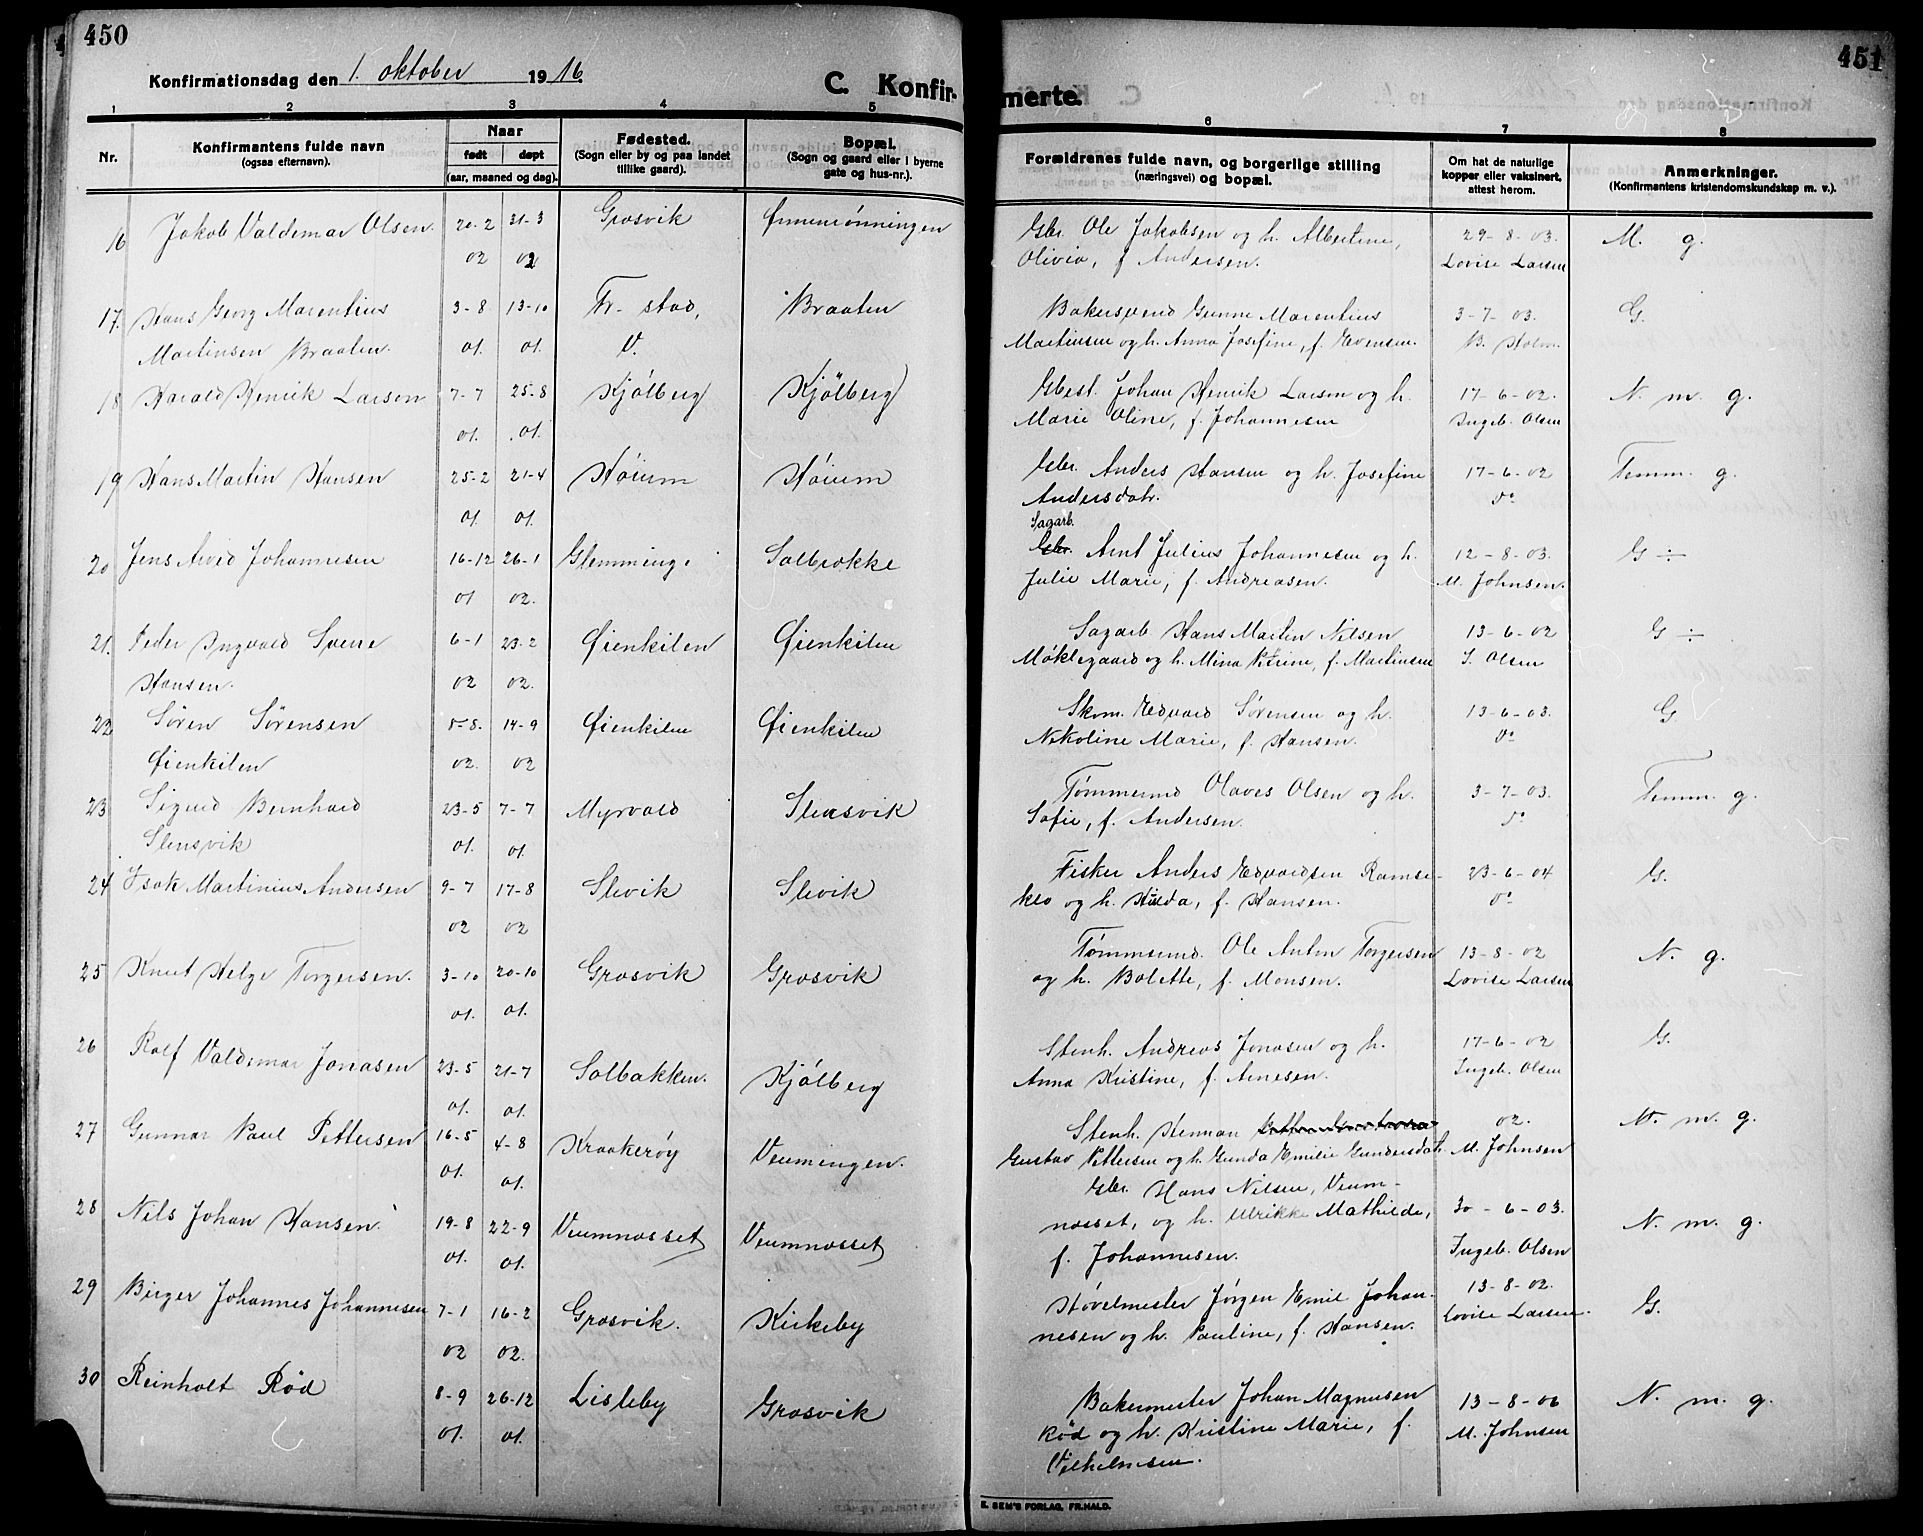 450
Konfirmationsdag den 1. oktober 1916.
C. Konfir-
1 2 3 4 5
Nr.
Konfirmantens fulde navn
(ogsaa efternavn).
Naar
født døpt
(aar, maaned og dag).
Fødested.
(Sogn eller by og paa landet
tillike gaard).
Bopæl.
(Sogn og gaard eller i byerne
gate og hus-nr.).
16 Jakob Valdemar Olsen. 20-2 31-3 Grosvik
02 02
17. Hans Georg Marentius 3-8 13-10 Fr. stad, Braaten
Martinsen Braaten. 01. 01. V.
18 Harald Henrik Larsen 7-7 25-8 Kjølberg Kjölberg
01. 01.
19 Hans Martin Hansen 25-2 21-4 Høium Høium
01. 01.
20 Jens Arvid Johannesen 16-12 26-1 Glemminge Solbrække
01 02.
21. Peder Ingvald Sverre 6-1 23-2 Øienkilen Øienkilen
Hansen. 02 02.
22 Sören Sörensen 5-8. 14-9 Øienkilen Øienkilen
Øienkilen 02. 02
23 Sigurd Bernhard 23-5 7-7 Myrvold Slensvik
Slensvik 01. 01.
24 Isak Martinius Andersen 9-7 17-8 Slevik Slevik
02 02
25 Knut Helge Torgersen. 3-10 20-10 Grosvik Grosvik
01. 01.
26 Rolf Valdemar Jonasen 23-5 21-7 Solbakken. Kjølberg
01. 01.
27 Gunnar Paul Pettersen 16-5 4-8 Kraakerøy Veumengen.
01. 01.
28 Nils Johan Hansen. 19-8 22-9 Veumnæsset Veumnæsset
01. 01.
29 Birger Johannes Johannesen 7-1 16-2 Grosvik. Kirkeby
02 02.
30 Reinholt Rød 8-9 26-12 Lisleby Grosvik
01. 01.
451
merte.
6 7 8
Forældrenes fulde navn, og borgerlige stilling
(næringsvei) og bopæl.
Om hat de naturlige
kopper eller vaksinert,
attest herom.
Anmerkninger.
(Konfirmantens kristendomskundskap m. v.).
Gbr. Ole Jakobsen og h. Albertine, 29-8-03. M. g.
Olivia, f. Andersen. Lovise Larsen
Bakersvend Gunne Marentius 3-7-03. G.
Martinsen og h. Anna Josefine, f. Evensen. B. Holm.
Gbest. Johan Henrik Larsen og h. 17-6-02. N. m. g.
Marie Oline, f. Johannesen Ingeb. Olsen
Gbr. Anders Hansen og h. Josefine 17-6-02 Temm. g.
Andersdatr. do
Sagarb.
Gbr. Arnt Julius Johannesen og h. 12-8-03. G ÷
Julie Marie, f. Andreasen. M. Johnsen.
Sagarb. Hans Martin Nilsen 13-6-02 G ÷
Møklegaard og h. Mina Petrine, f. Martinsen I. Olsen
Skom. Edvard Sørensen og h. 13-6-03. G
Nikoline Marie, f. Hansen. do
Tømmermd Olaves Olsen og h. 3-7-03. Temm. g.
Sofie, f. Andersen. do
Fisker Anders Edvardsen Ramse- 23-6-04 G.
klo og h. Hulda, f. Hansen. do
Tømmermd. Ole Anton Torgersen 13-8-02 N. g.
og h. Bolette, f. Monsen. Lovise Larsen
Stenh. Andreas Jonasen og h. 17-6-02 G.
Anna Kristine, f. Arnesen. Ingeb. Olsen
Stenh. Herman 02. N. m. g.
Gustav Pettersen og h. Gunda Emilie Gundersdatr. M. Johnsen
Gbr. Hans Nilsen, Veum-
næsset, og h. Ulrikke Mathilde, 30-6-03. N. m. g.
f. Johannesen. Ingeb. Olsen
Høvelmester Jørgen Emil Johan- 13-8-02. G.
nesen og h. Pauline, f. Hansen. Lovise Larsen.
Bakermester Johan Magnusen 13-8-06 N. m. g.
Rød og h. Kristine Marie, f. M. Johnsen
Vilhelmsen.
E. SEM'S FORLAG, FR.HALD.